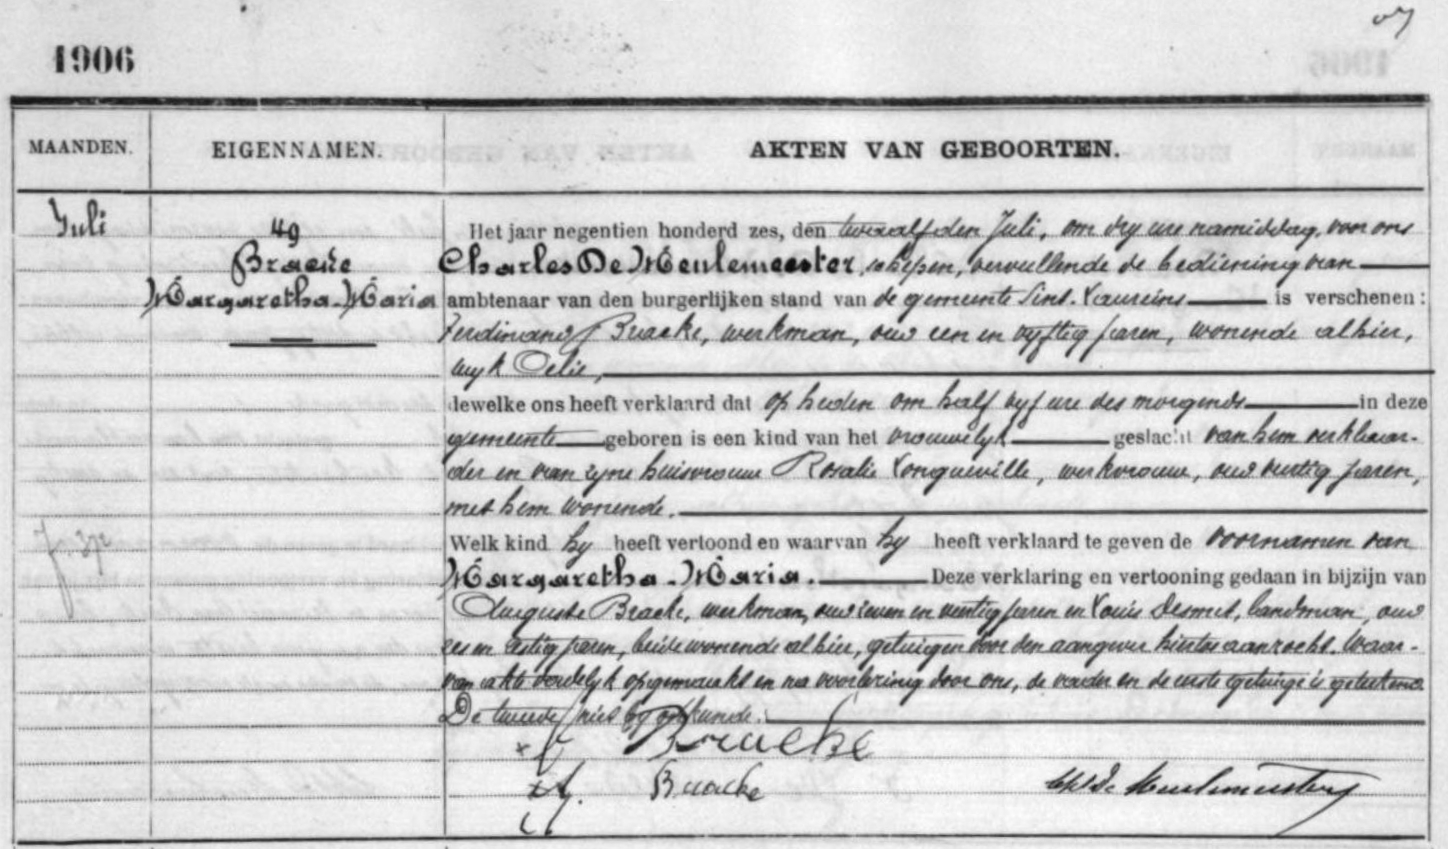 1906
MAANDEN.
EIGENNAMEN.
AKTEN VAN GEBOORTEN.
Juli
49
Bracke
Margaretha-Maria
Het jaar negentien honderd zes, den twaalfden Juli, om dry ure namiddag, voor ons
Charles De Meulemeester, schepen, vervullende de bediening van
ambtenaar van den burgerlijken stand van de gemeente Sint-Laureins is verschenen:
Ferdinand Bracke, werkman, oud een en vyftig jaren, wonende alhier,
wyk Celie,
dewelke ons heeft verklaard dat op heden om half vyf ure des morgends in deze
gemeente geboren is een kind van het vrouwelyk geslacht van hem verklaar-
der en van zyne huisvrouw Rosalie Longueville, werkvrouw, oud veertig jaren,
met hem wonende.
Welk kind hy heeft vertoond en waarvan hy heeft verklaard te geven de voornamen van
Margaretha-Maria. Deze verklaring en vertooning gedaan in bijzijn van
Auguste Bracke, werkman, oud zeven en veertig jaren en Louis Desmet, landman, oud
zes en zestig jaren, beide wonende alhier, getuigen door den aangever hiertoe aanzocht. Waar-
van akte dadelyk opgemaakt en na voorlezing door ons, de vader en de eerste getuige is geteekend
De tweede niet by onkunde.
Bracke
Bracke
Ch De Meulemeester